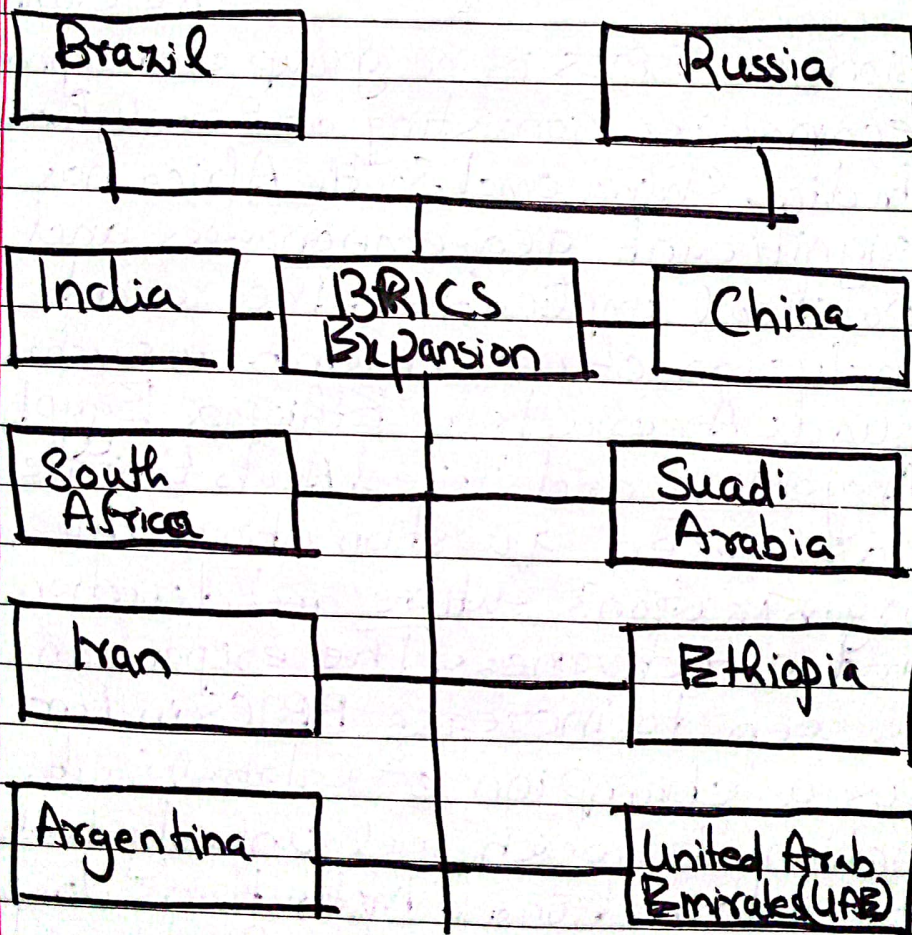 Brazil
Russia
India
BRICS
Expansion
China
South
Africa
Suadi
Arabia
Iran
Ethiopia
Argentina
United Arab
Emirates(UAE)